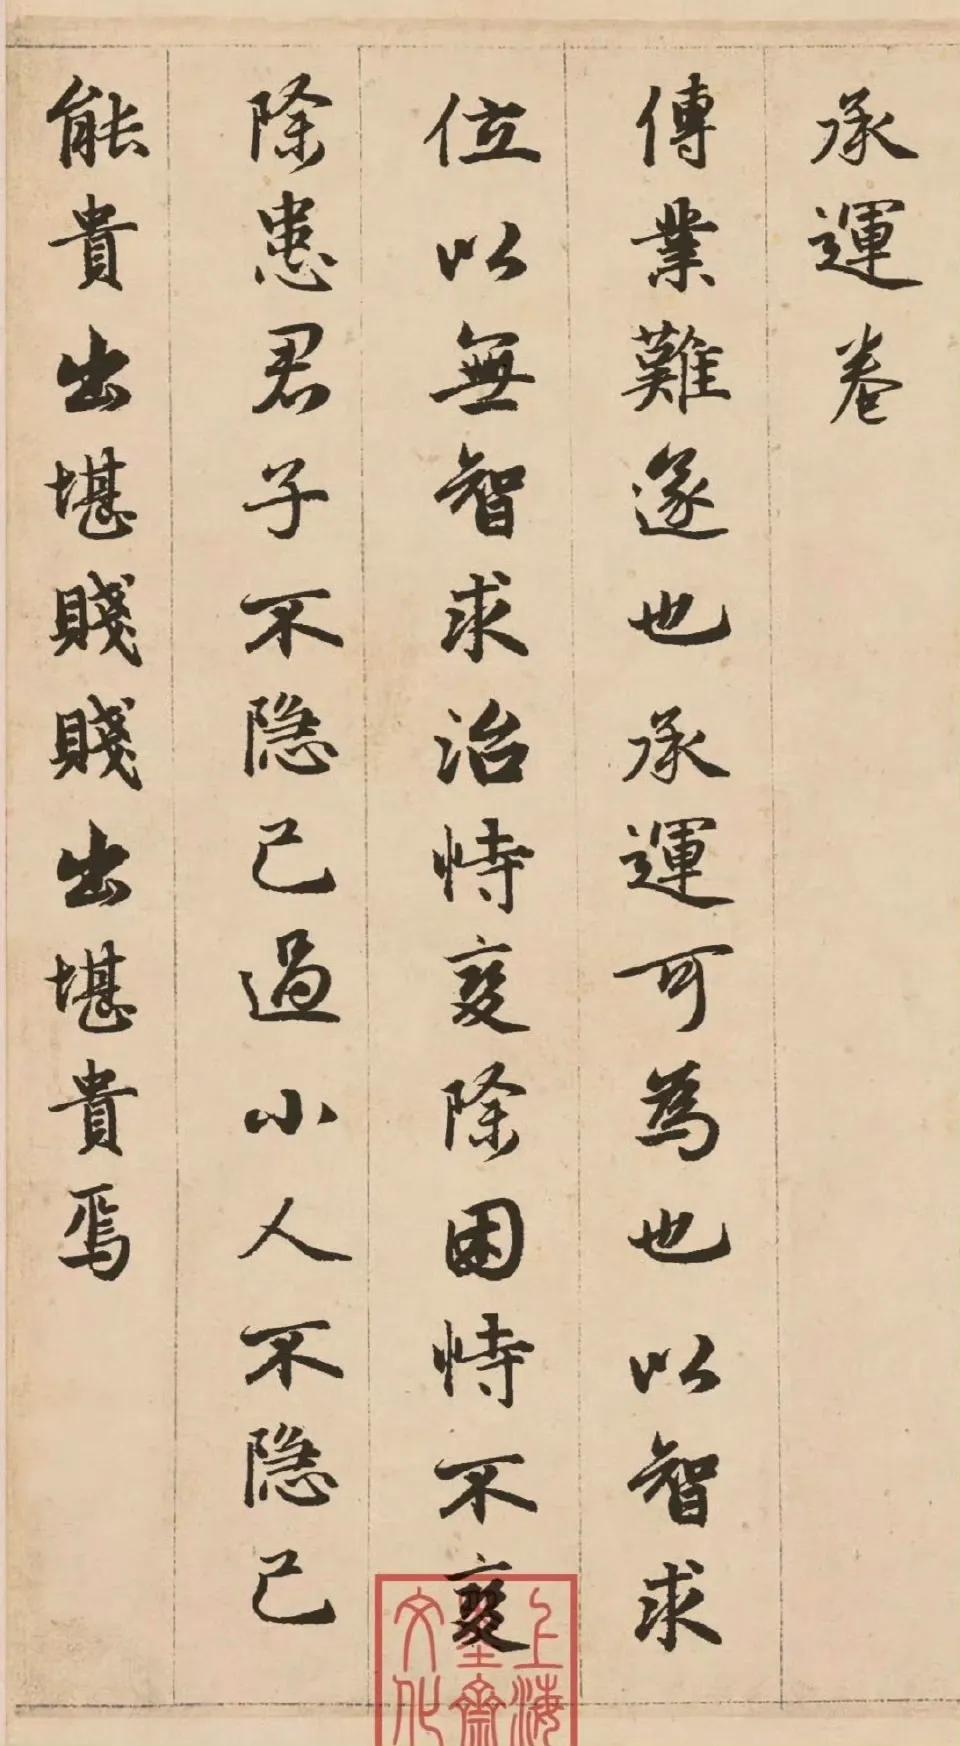 承運卷
傳業難遂也承運可為也以智求
位以無智求治恃变除困恃不变
除患君子不隐己過小人不隐己
能貴出堪賤賤出堪貴焉
上海
墨齋
文化